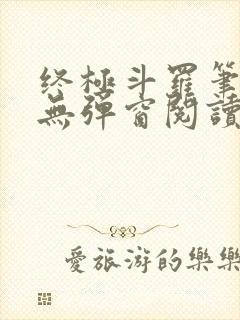 终極斗羅筆
無彈窗閱讀
愛旅游的樂樂